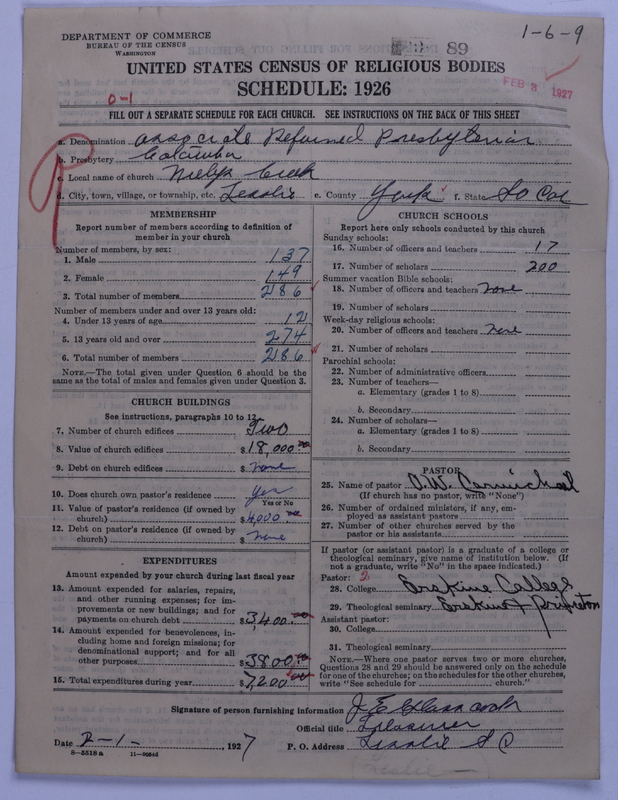 DEPARTMENT OF COMMERCE
BUREAU OF THE CENSUS
WASHINGTON
89
1-6-9
UNITED STATES CENSUS OF RELIGIOUS BODIES
SCHEDULE: 1926
FEB 3 1927
0-1
FILL OUT A SEPARATE SCHEDULE FOR EACH CHURCH. SEE INSTRUCTIONS ON THE BACK OF THIS SHEET
a. Denomination Associate Reformed Presbyterian
b. Presbytery Catawba
c. Local name of church Neelys Creek
d. City, town, village, or township, etc. Lesslie e. County York f. State So Car
MEMBERSHIP
Report number of members according to definition of member in your church
Number of members, by sex:
1. Male 137
2. Female 149
3. Total number of members 286
Number of members under and over 13 years old:
4. Under 13 years of age 12
5. 13 years old and over 274
6. Total number of members 286
NOTE.—The total given under Question 6 should be
same as the total of males and females given under Question 3.
CHURCH BUILDINGS
See instructions, paragraphs 10 to 12
7. Number of church edifices Two
8. Value of church edifices $18,000.00
9. Debt on church edifices $ none
10. Does church own pastor's residence yes
Yes or No
11. Value of pastor's residence (if owned by
church) $4,000.00
12. Debt on pastor's residence (if owned by
church) $ none
EXPENDITURES
Amount expended by your church during last fiscal year
13. Amount expended for salaries, repairs,
and other running expenses; for im-
provements or new buildings; and for
payments on church debt $3,400.00
14. Amount expended for benevolences, in-
cluding home and foreign missions; for
denominational support; and for all
other purposes $3800.00
15. Total expenditures during year $7,200.00
CHURCH SCHOOLS
Report here only schools conducted by this church
Sunday schools:
16. Number of officers and teachers 17
17. Number of scholars 200
Summer vacation Bible schools:
18. Number of officers and teachers none
19. Number of scholars
Week-day religious schools:
20. Number of officers and teachers none
21. Number of scholars
Parochial schools:
22. Number of administrative officers
23. Number of teachers—
a. Elementary (grades 1 to 8)
b. Secondary
24. Number of scholars—
a. Elementary (grades 1 to 8)
b. Secondary
PASTOR
25. Name of pastor Carmichael
(If church has no pastor, write "None")
26. Number of ordained ministers, if any, em-
ployed as assistant pastors
27. Number of other churches served by the
pastor or his assistants
If pastor (or assistant pastor) is a graduate of a college or
theological seminary, give name of institution below. (If
not a graduate, write "No" in the space indicated.)
Pastor: 2
28. College Erskine College
29. Theological seminary Erskine & Princeton
Assistant pastor:
30. College
31. Theological seminary
NOTE.—Where one pastor serves two or more churches,
Questions 28 and 29 should be answered only on the schedule
for one of the churches; on the schedules for the other churches,
write "See schedule for church."
Signature of person furnishing information J. E.
Official title Treasurer
Date 2-1- 1927 P. O. Address Lesslie S C
8-5518 a
Leslie